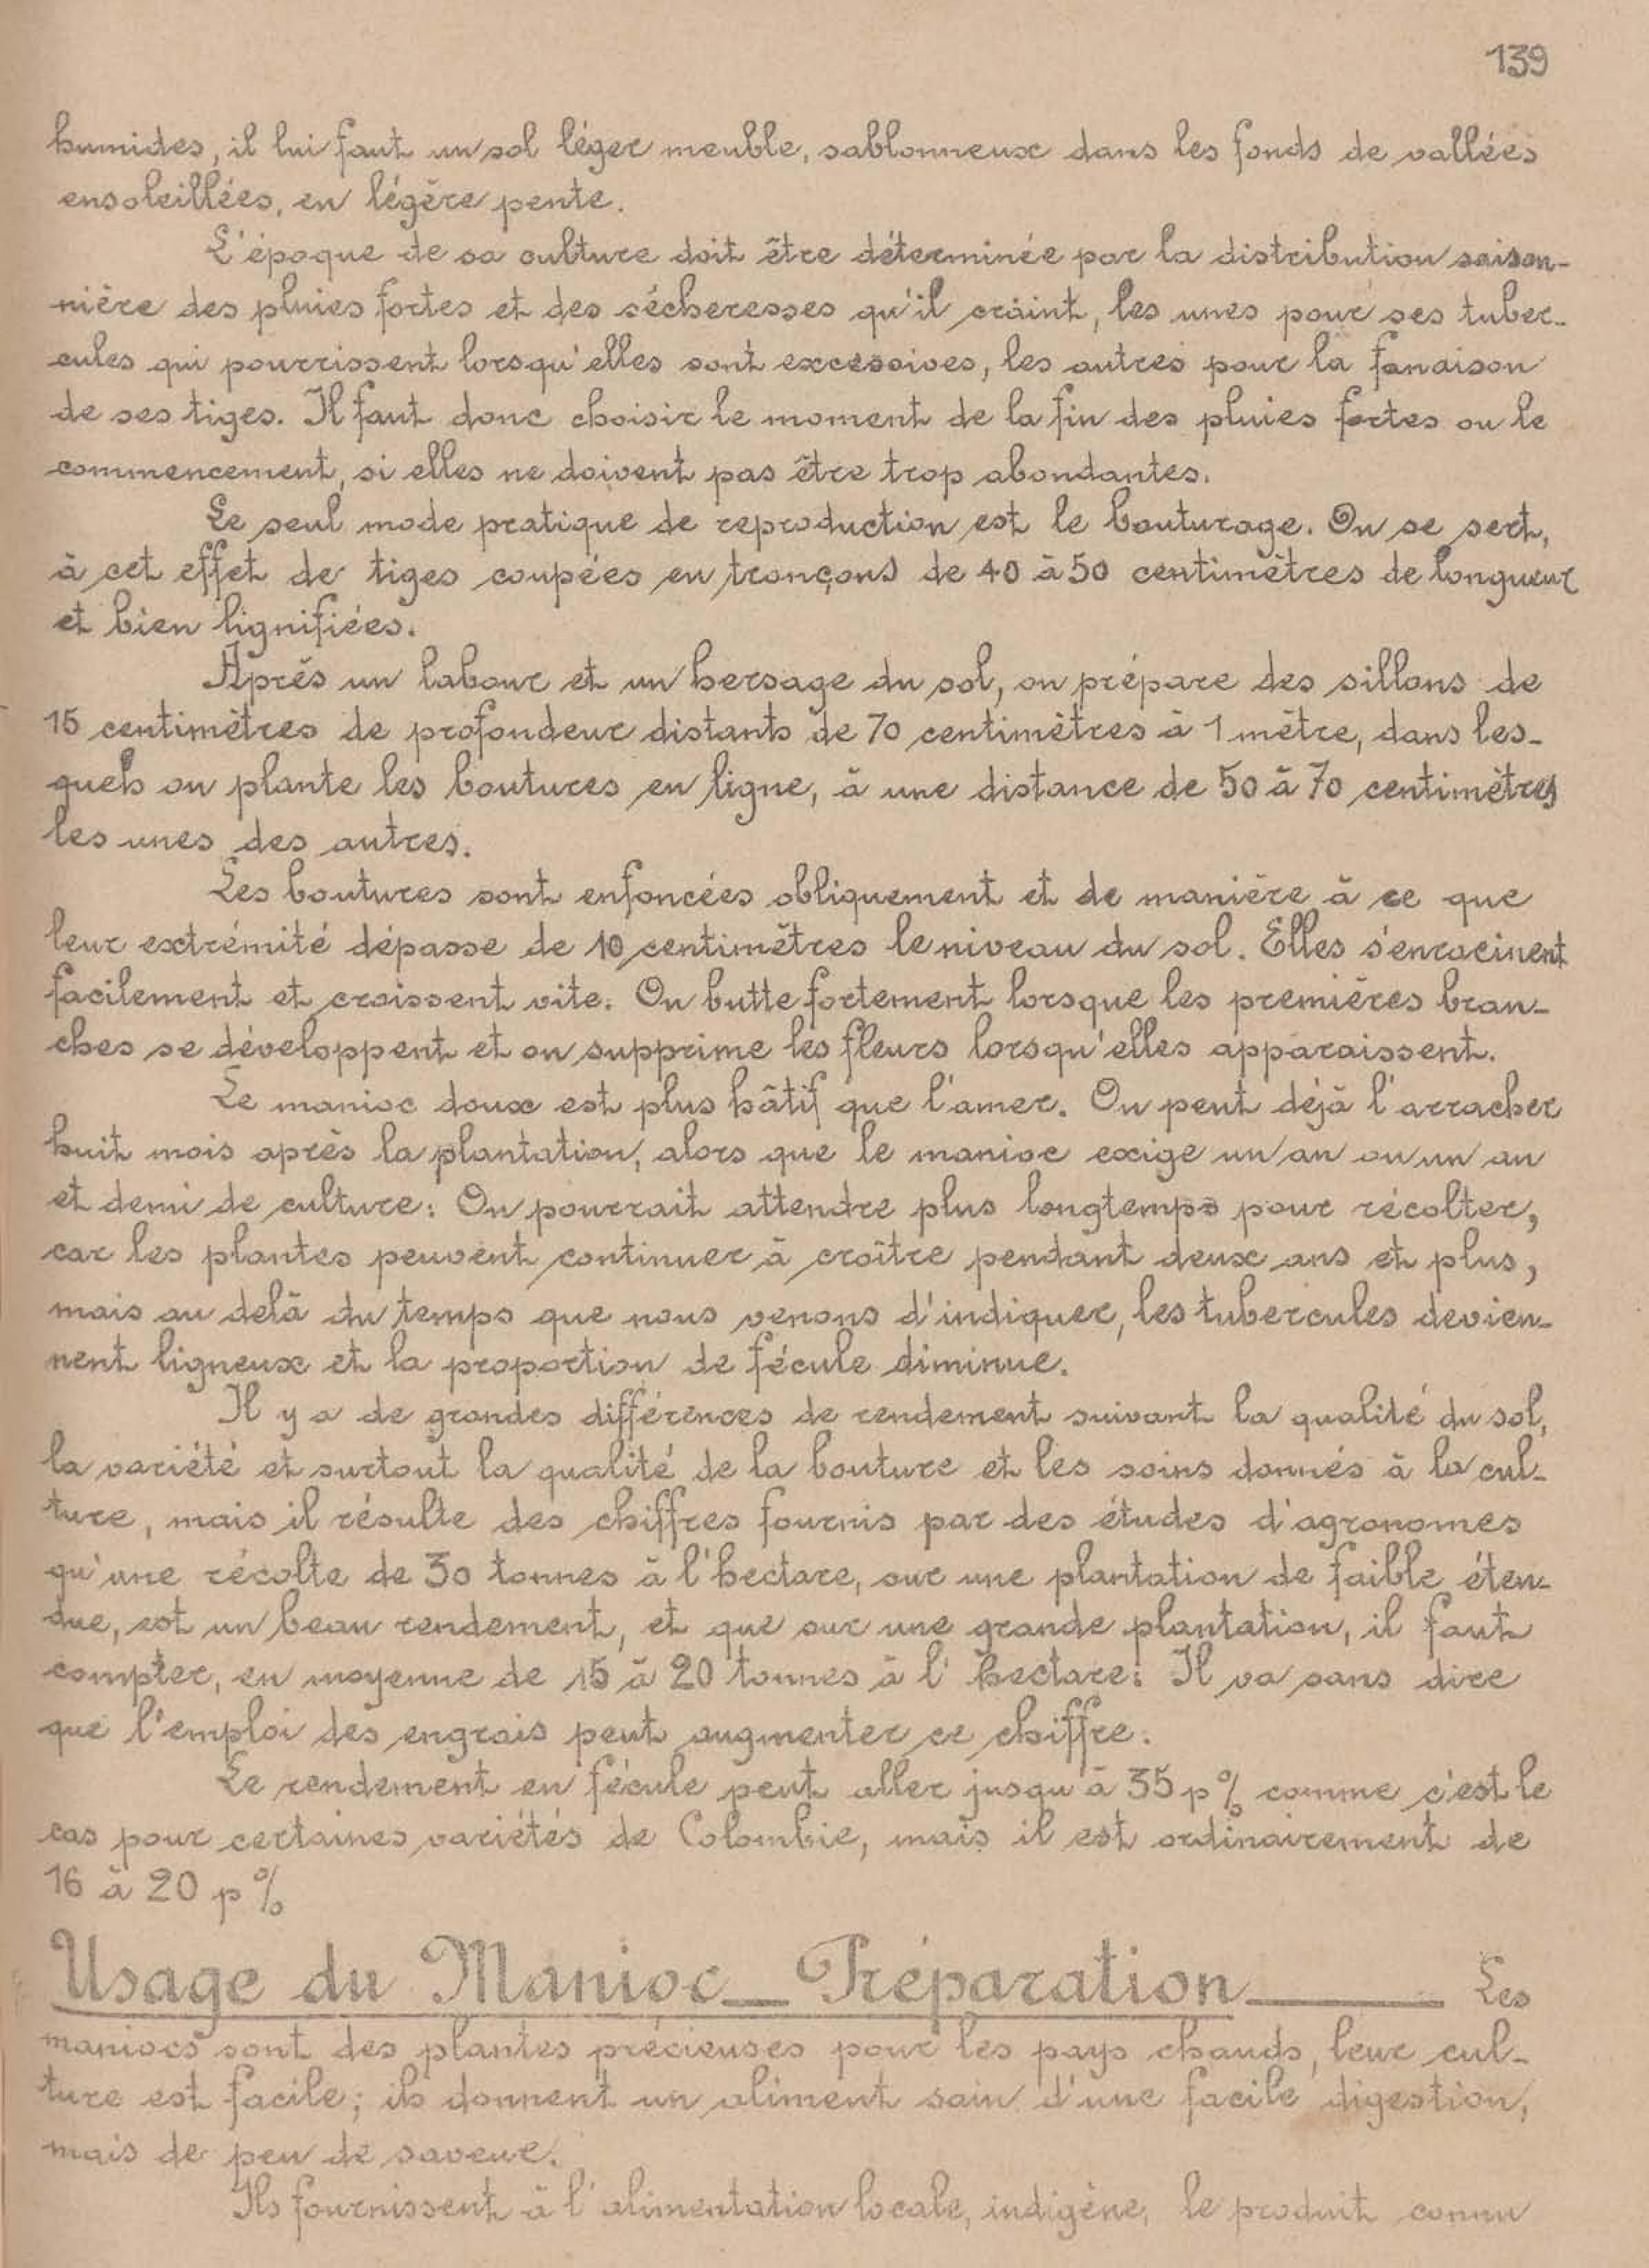 139
humides, il lui faut un sol léger meuble, sablonneux dans les fonds de vallées
ensoleillées, en légère pente.
L'époque de sa culture doit être déterminée par la distribution saison-
nière des pluies fortes et des sécheresses qu'il craint, les unes pour ses tuber-
cules qui pourrissent lorsqu'elles sont excessives, les autres pour la fanaison
de ses tiges. Il faut donc choisir le moment de la fin des pluies fortes ou le
commencement, si elles ne doivent pas être trop abondantes.
Le seul mode pratique de reproduction est le bouturage. On se sert,
à cet effet de tiges coupées en tronçons de 40 à 50 centimètres de longueur
et bien lignifiées.
Après un labour et un hersage du sol, on prépare des sillons de
15 centimètres de profondeur distants de 70 centimètres à 1 mètre, dans les-
quels on plante les boutures en ligne, à une distance de 50 à 70 centimètres
les unes des autres.
Les boutures sont enfoncées obliquement et de manière à ce que
leur extrémité dépasse de 10 centimètres le niveau du sol. Elles s'enracinent
facilement et croissent vite. On butte fortement lorsque les premières bran-
ches se développent et on supprime les fleurs lorsqu'elles apparaissent.
Le manioc doux est plus hâtif que l'amer. On peut déjà l'arracher
huit mois après la plantation, alors que le manioc exige un an ou un an
et demi de culture: On pourrait attendre plus longtemps pour récolter,
car les plantes peuvent continuer à croître pendant deux ans et plus,
mais au delà du temps que nous venons d'indiquer, les tubercules devien-
nent ligneux et la proportion de fécule diminue.
Il y a de grandes différences de rendement suivant la qualité du sol,
la variété et surtout la qualité de la bouture et les soins donnés à la cul-
ture, mais il résulte des chiffres fournis par des études d'agronomes
qu'une récolte de 30 tonnes à l'hectare, sur une plantation de faible éten-
due, est un beau rendement, et que sur une grande plantation, il faut
compter, en moyenne de 15 à 20 tonnes à l'hectare: Il va sans dire
que l'emploi des engrais peut augmenter ce chiffre.
Le rendement en fécule peut aller jusqu'à 35 p % comme c'est le
cas pour certaines variétés de Colombie, mais il est ordinairement de
16 à 20 p %
Usage du Manioc_ Préparation_ Les
maniocs sont des plantes précieuses pour les pays chauds, leur cul-
ture est facile; ils donnent un aliment sain d'une facile digestion,
mais de peu de saveur.
Ils fournissent à l'alimentation locale, indigène, le produit connu